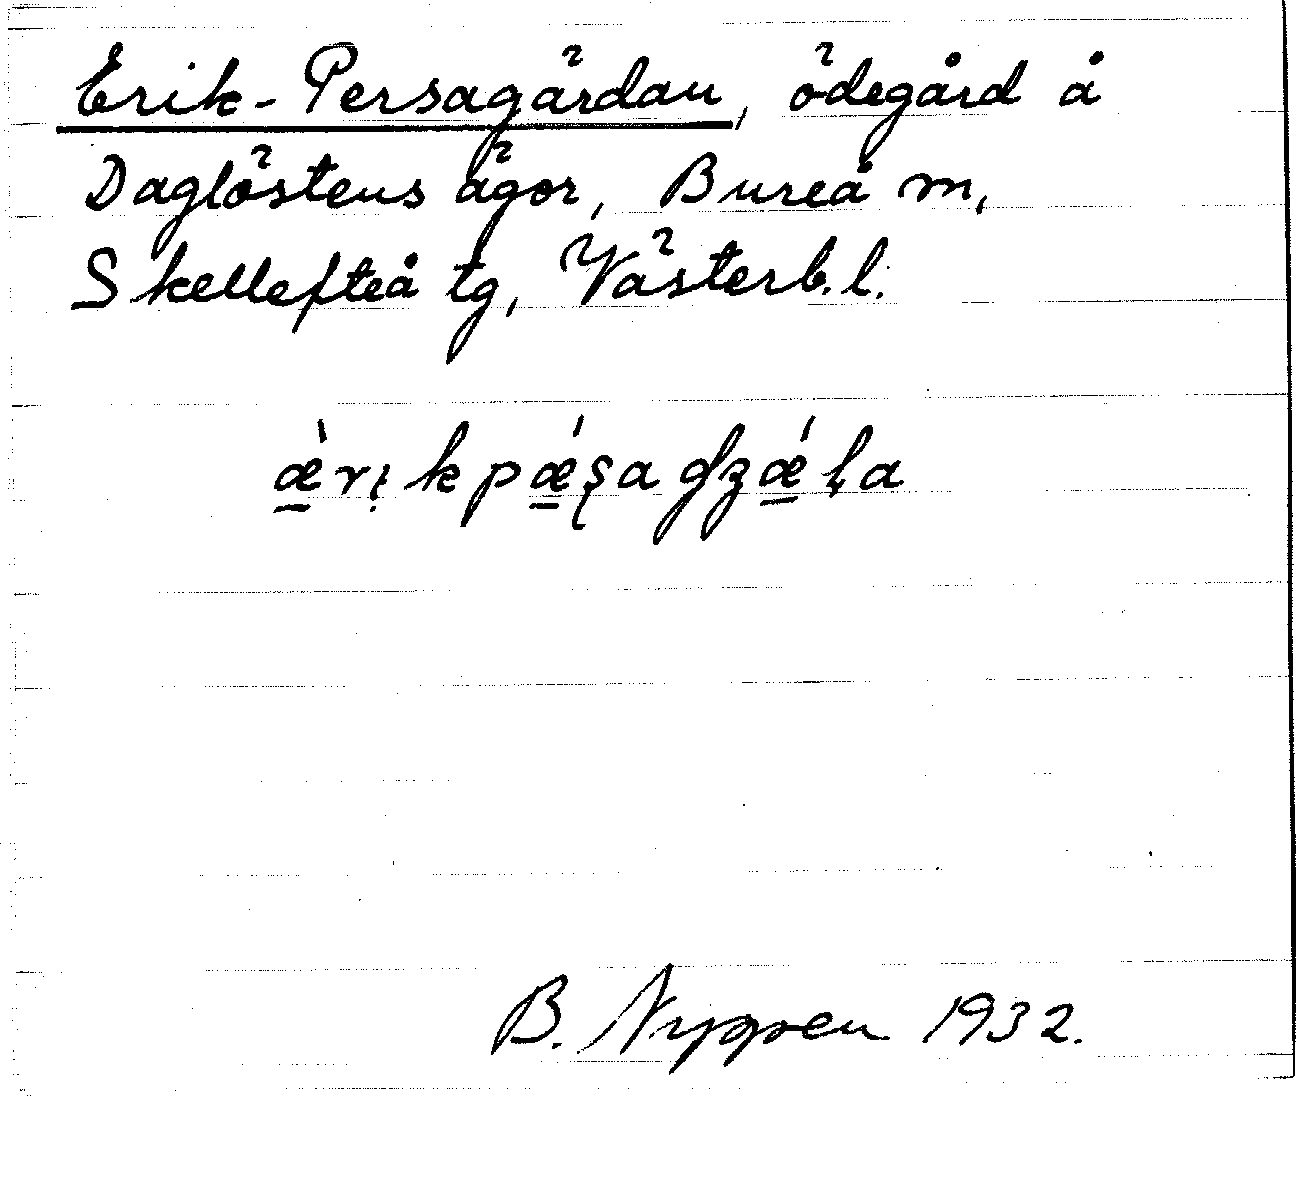 Erik-Persagärdan, ödegård å
Daglöstens ägor, Bureå m,
Skellefteå tg, Västerb. l.
ǽ̱rı̣kpǽ̱ʂagʒǽ̱ḷa
B. Nygren 1932.